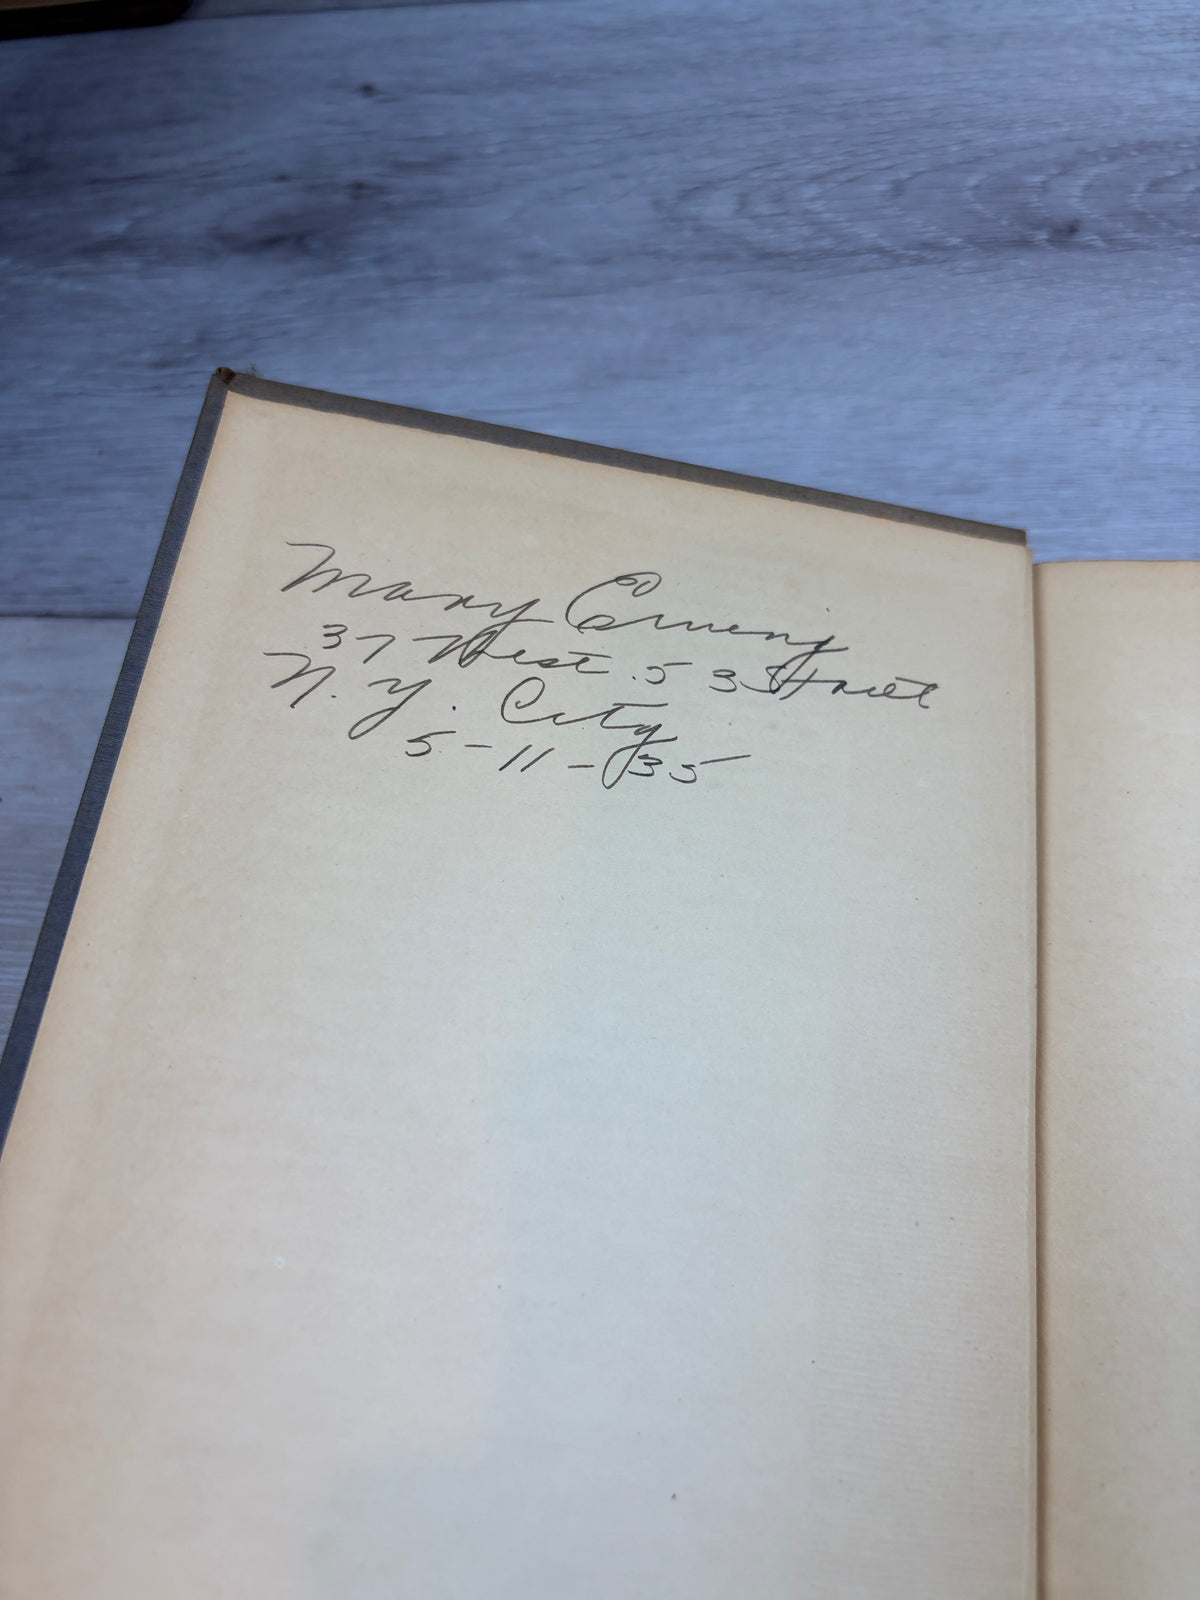 Mary
37 West 53 Street
N. Y. City
5-11-35